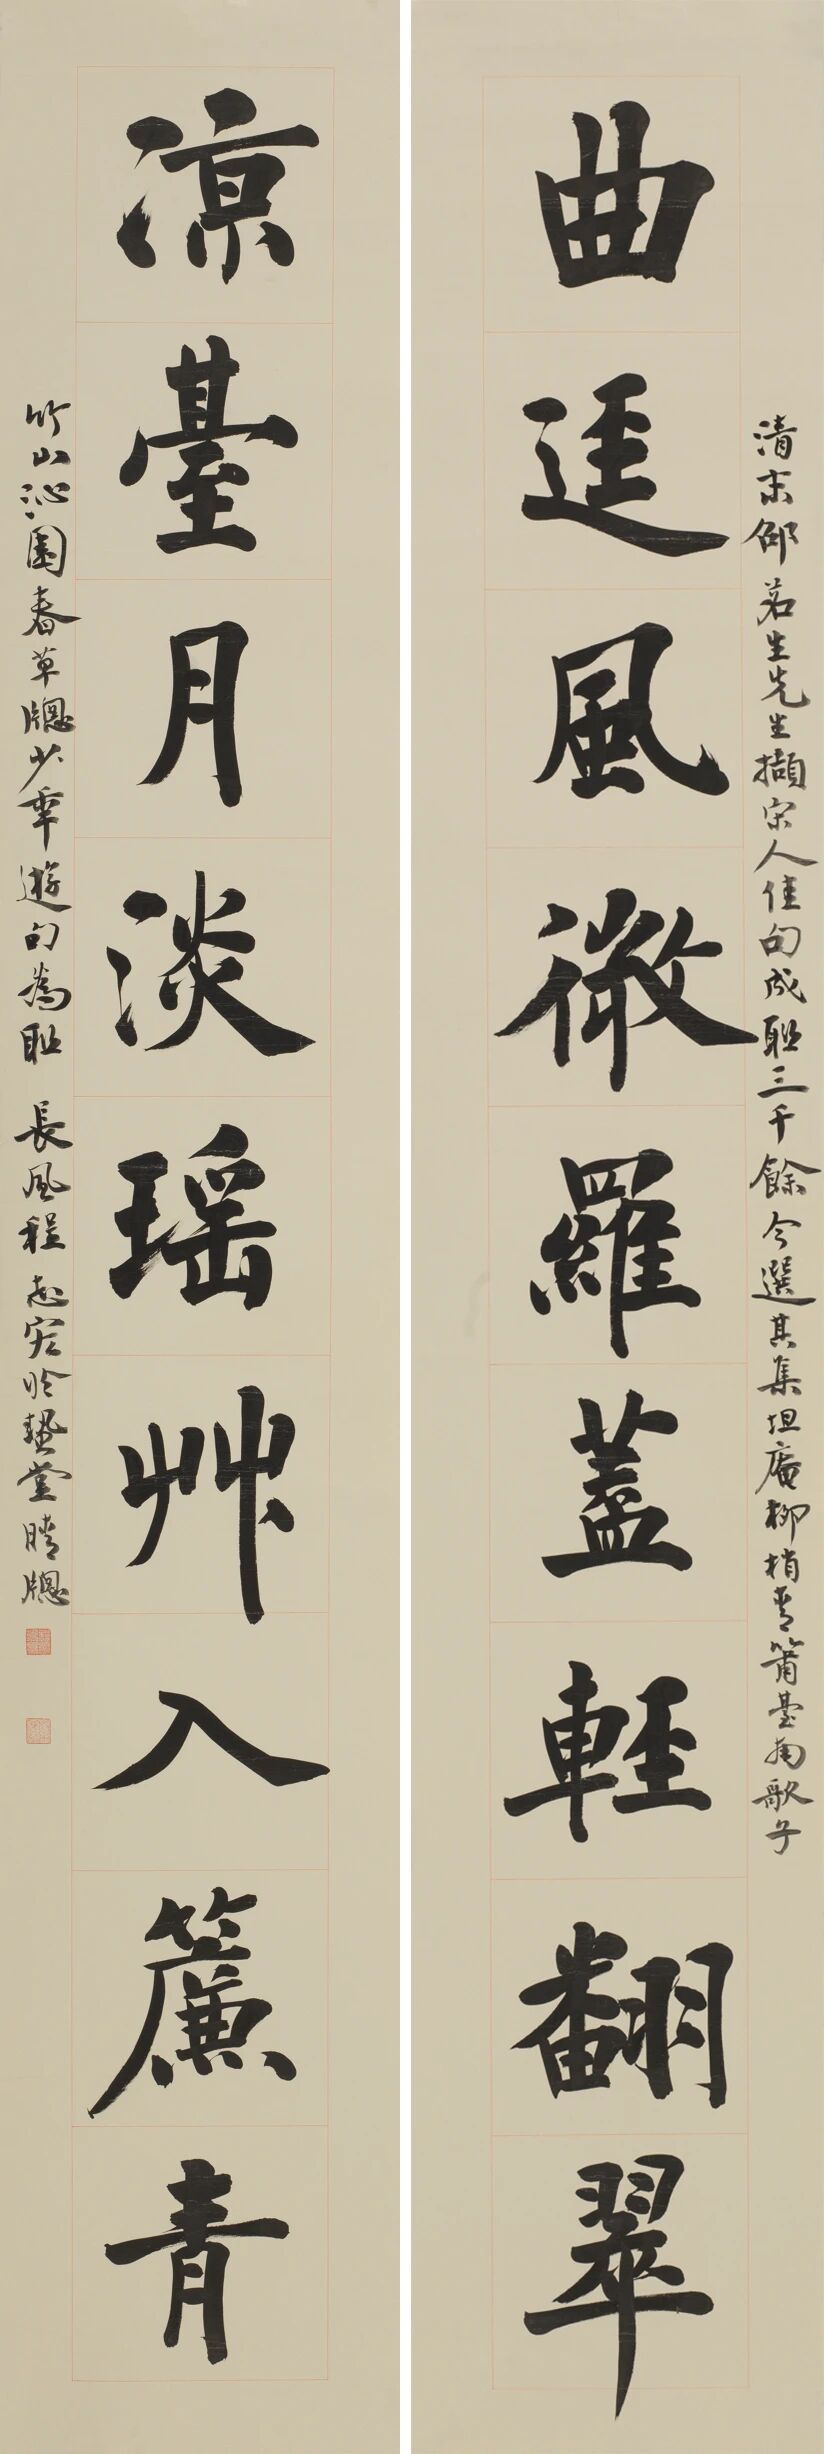 曲逕風微羅蓋輕翻翠
涼臺月淡瑶艸入簾青
清末邵茗生先生擷宋人佳句成聯三千餘今選其集坦庵柳梢青簫臺南歌子
竹山沁園春草牕少年遊句為聯 長風程志宏於蟄堂晴牕